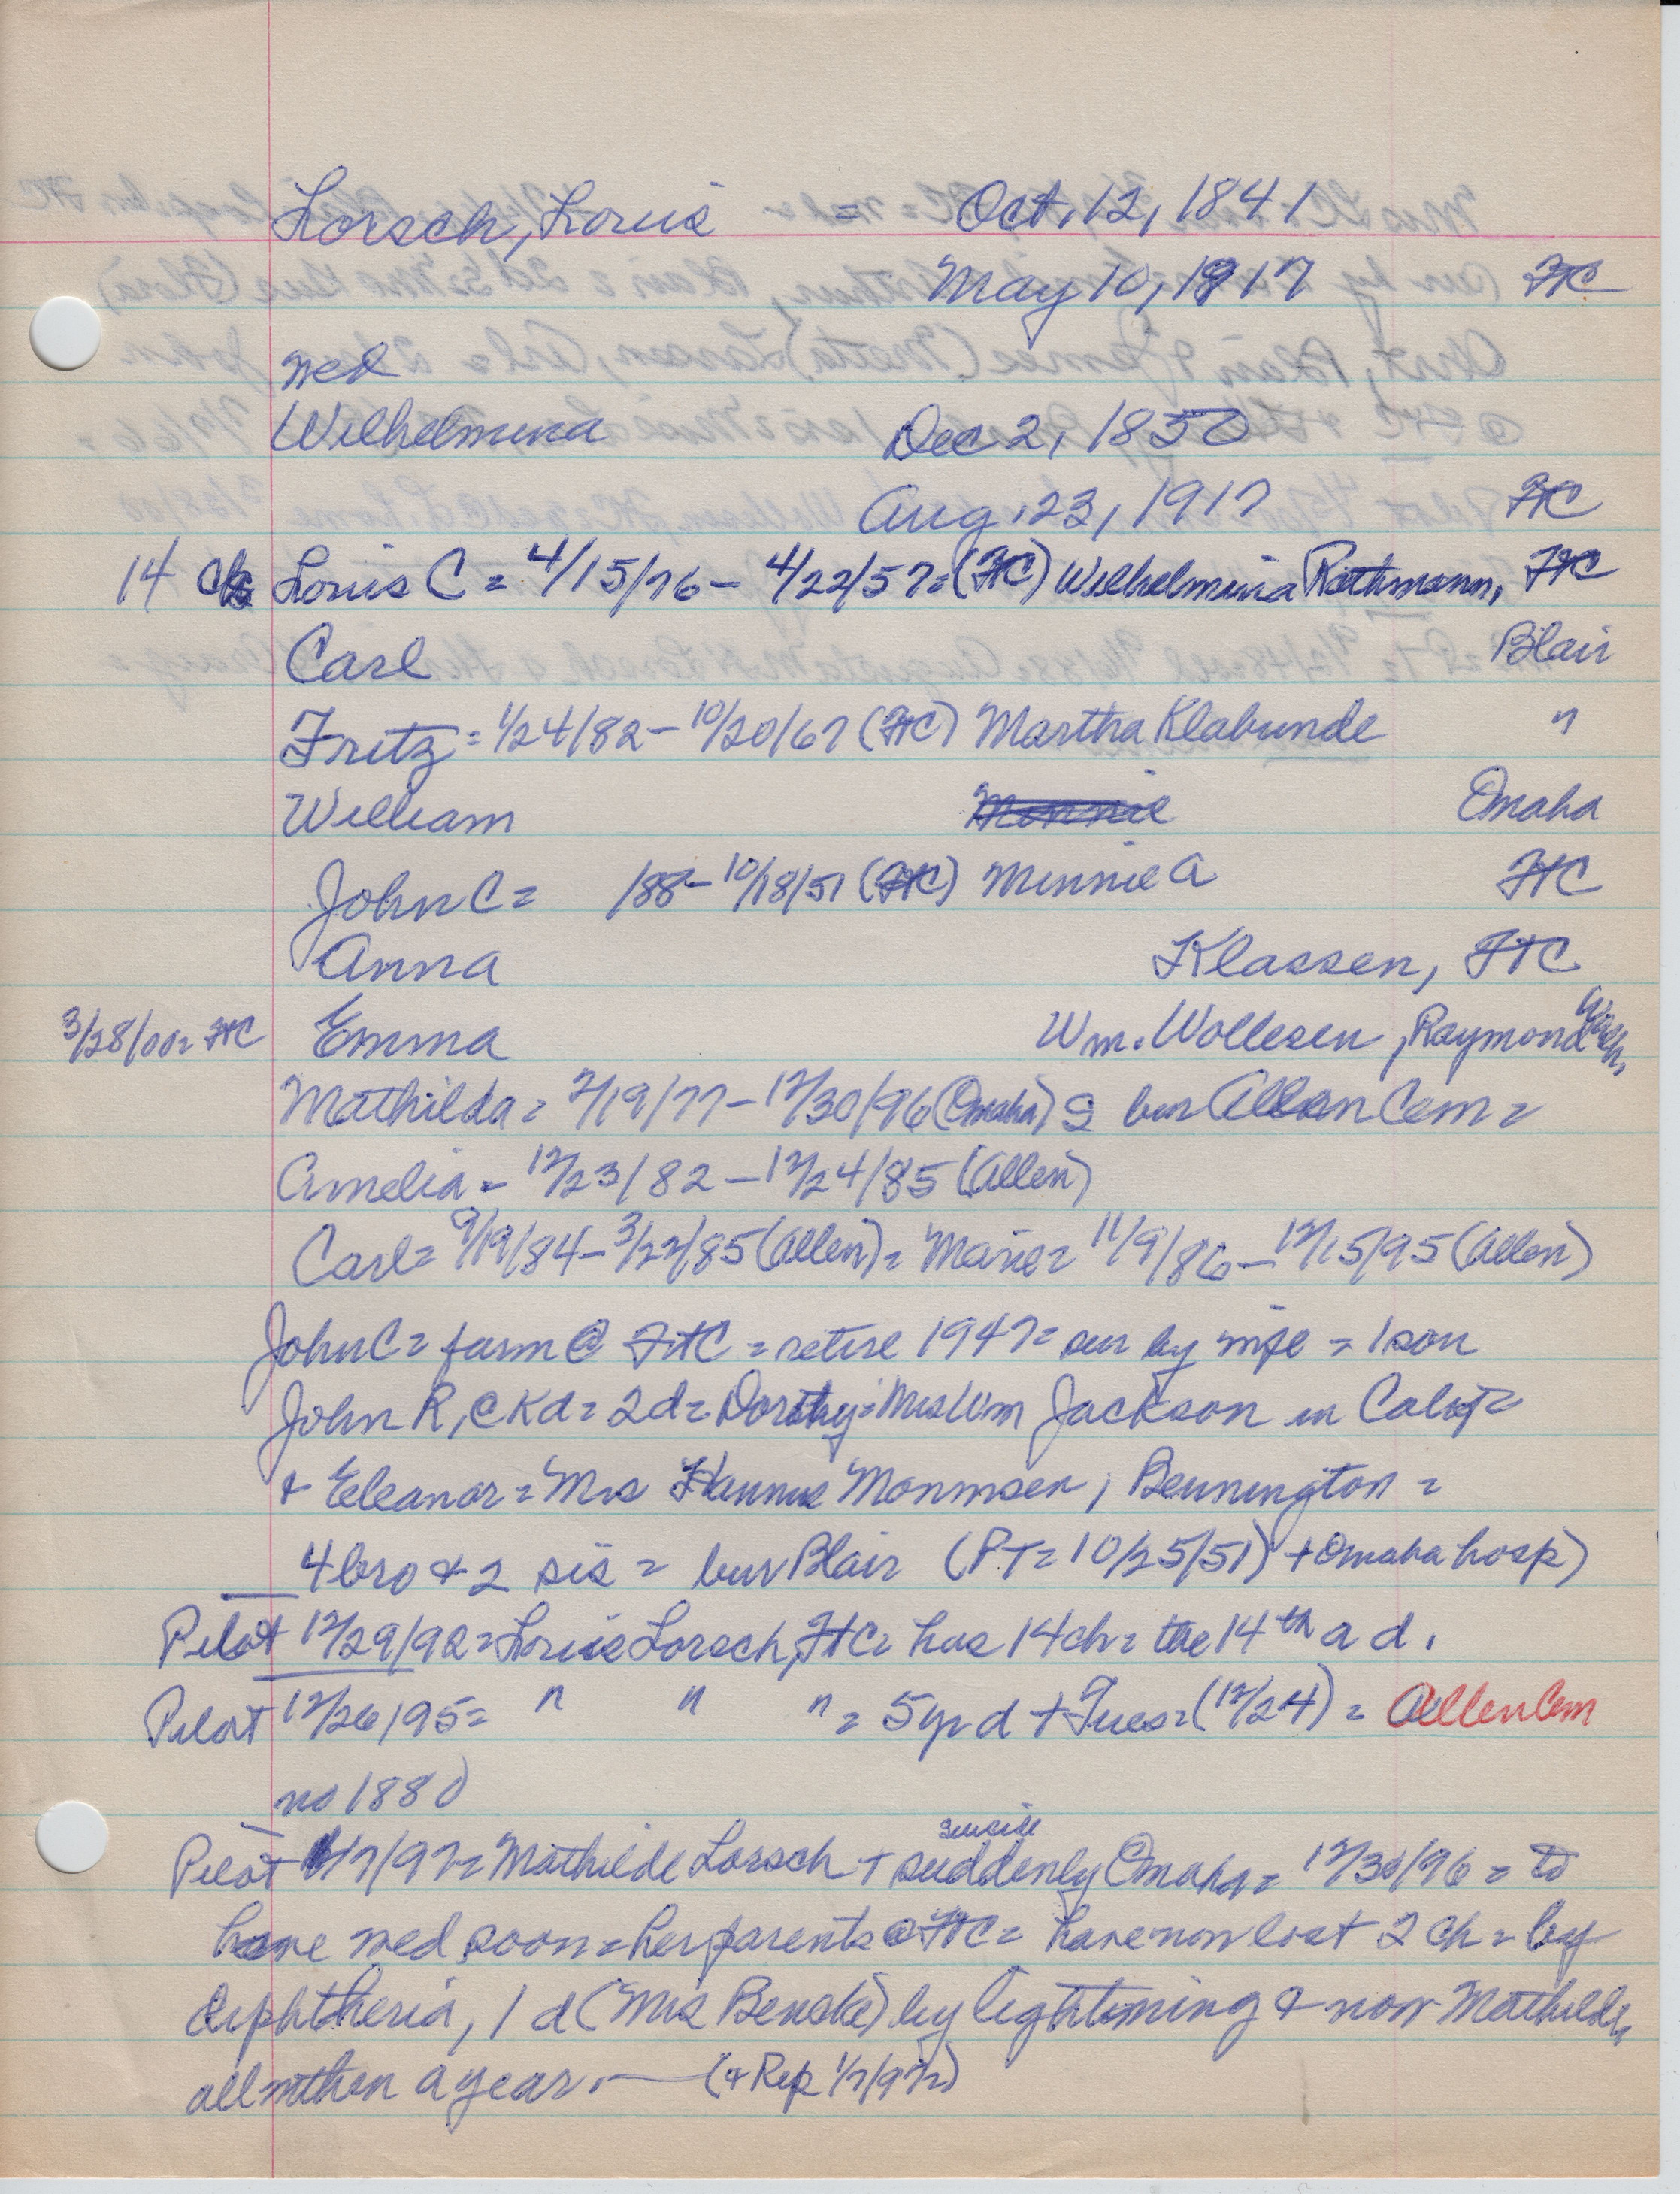 Lorsch, Louis = Oct. 12, 1841
May 10, 1917 FtC
wed
Wilhelmina Dec 2, 1850
Aug. 23, 1917 FtC
14 ch Louis C = 4/15/76 - 4/22/57 = (FtC) Wilhelmina Rathmann, FtC
Carl Blair
Fritz = 1/24/82 - 10/20/67 (FtC) Martha Klabunde "
William Omaha
John C = 188 - 10/18/51 (FtC) Minnie A FtC
Anna Klassen, FtC
3/28/00 = FtC Emma Wm. Wollesen, Raymond Wash.
Mathilda = 2/19/77 - 12/30/96 (Omaha) bur Allen Cem =
Amelia = 12/23/82 - 12/24/85 (Allen)
Carl = 9/19/84 - 3/22/85 (Allen) = Marie = 11/9/86 - 12/15/95 (Allen)
John C = farm @ FtC = retire 1947 = sur by wife = 1 son
John R, @ Kd = 2 d = Dorothy = Mrs Wm Jackson in Calif =
& Eleanor = Mrs Hannus Mommsen, Bennington =
4 bro & 2 sis = bur Blair (PT = 10/25/51) + Omaha hosp)
Pilot 12/29/92 = Louis Lorsch, FtC = has 14 ch = the 14th a d.
Pilot 12/26/95 = " " " = 5 yr d + Tues = (12/24) = Allen Cem
no 1880
Pilot 1/7/97 = Mathilde Lorsch + suicide suddenly Omaha = 12/30/96 = to
have wed soon = her parents @ FtC = have now lost 2 ch = by
diphtheria, 1 d (Mrs Benske) by lightning & now Mathilde,
all within a year. — (& Rep 1/7/97 =)